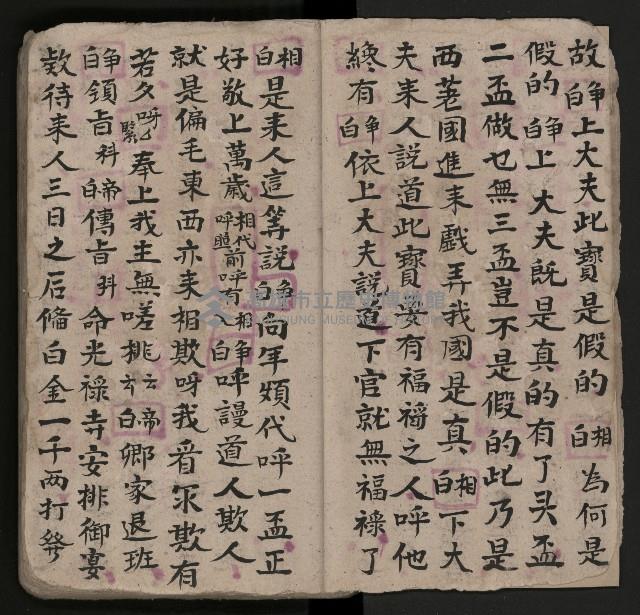 故淨白上大夫此寶是假的相白為何是
假的淨白上大夫既是真的有了頭盃
二盃做乜無三盃豈不是假的此乃是
西茖國進来戲弄我國是真相白下大
夫来人説道此寶要有福祿之人呼他
纔有淨白依上大夫説道下官就無福祿了
相白是来人這等説淨白向年頗代呼一盃正
好敬上萬歲相代前呼有介淨白呼謾道人欺人
就是偏毛東西亦来相欺呀我看你欺有
若久呀乜緊奉上我主無嗟桃玄帝白卿家退班
淨白領旨科帝白傳旨科命光祿寺安排御宴
欵待来人三日之后備白金一千两打發
高雄市立歷史博物館
KAOHSIUNG MUSEUM OF HISTORY